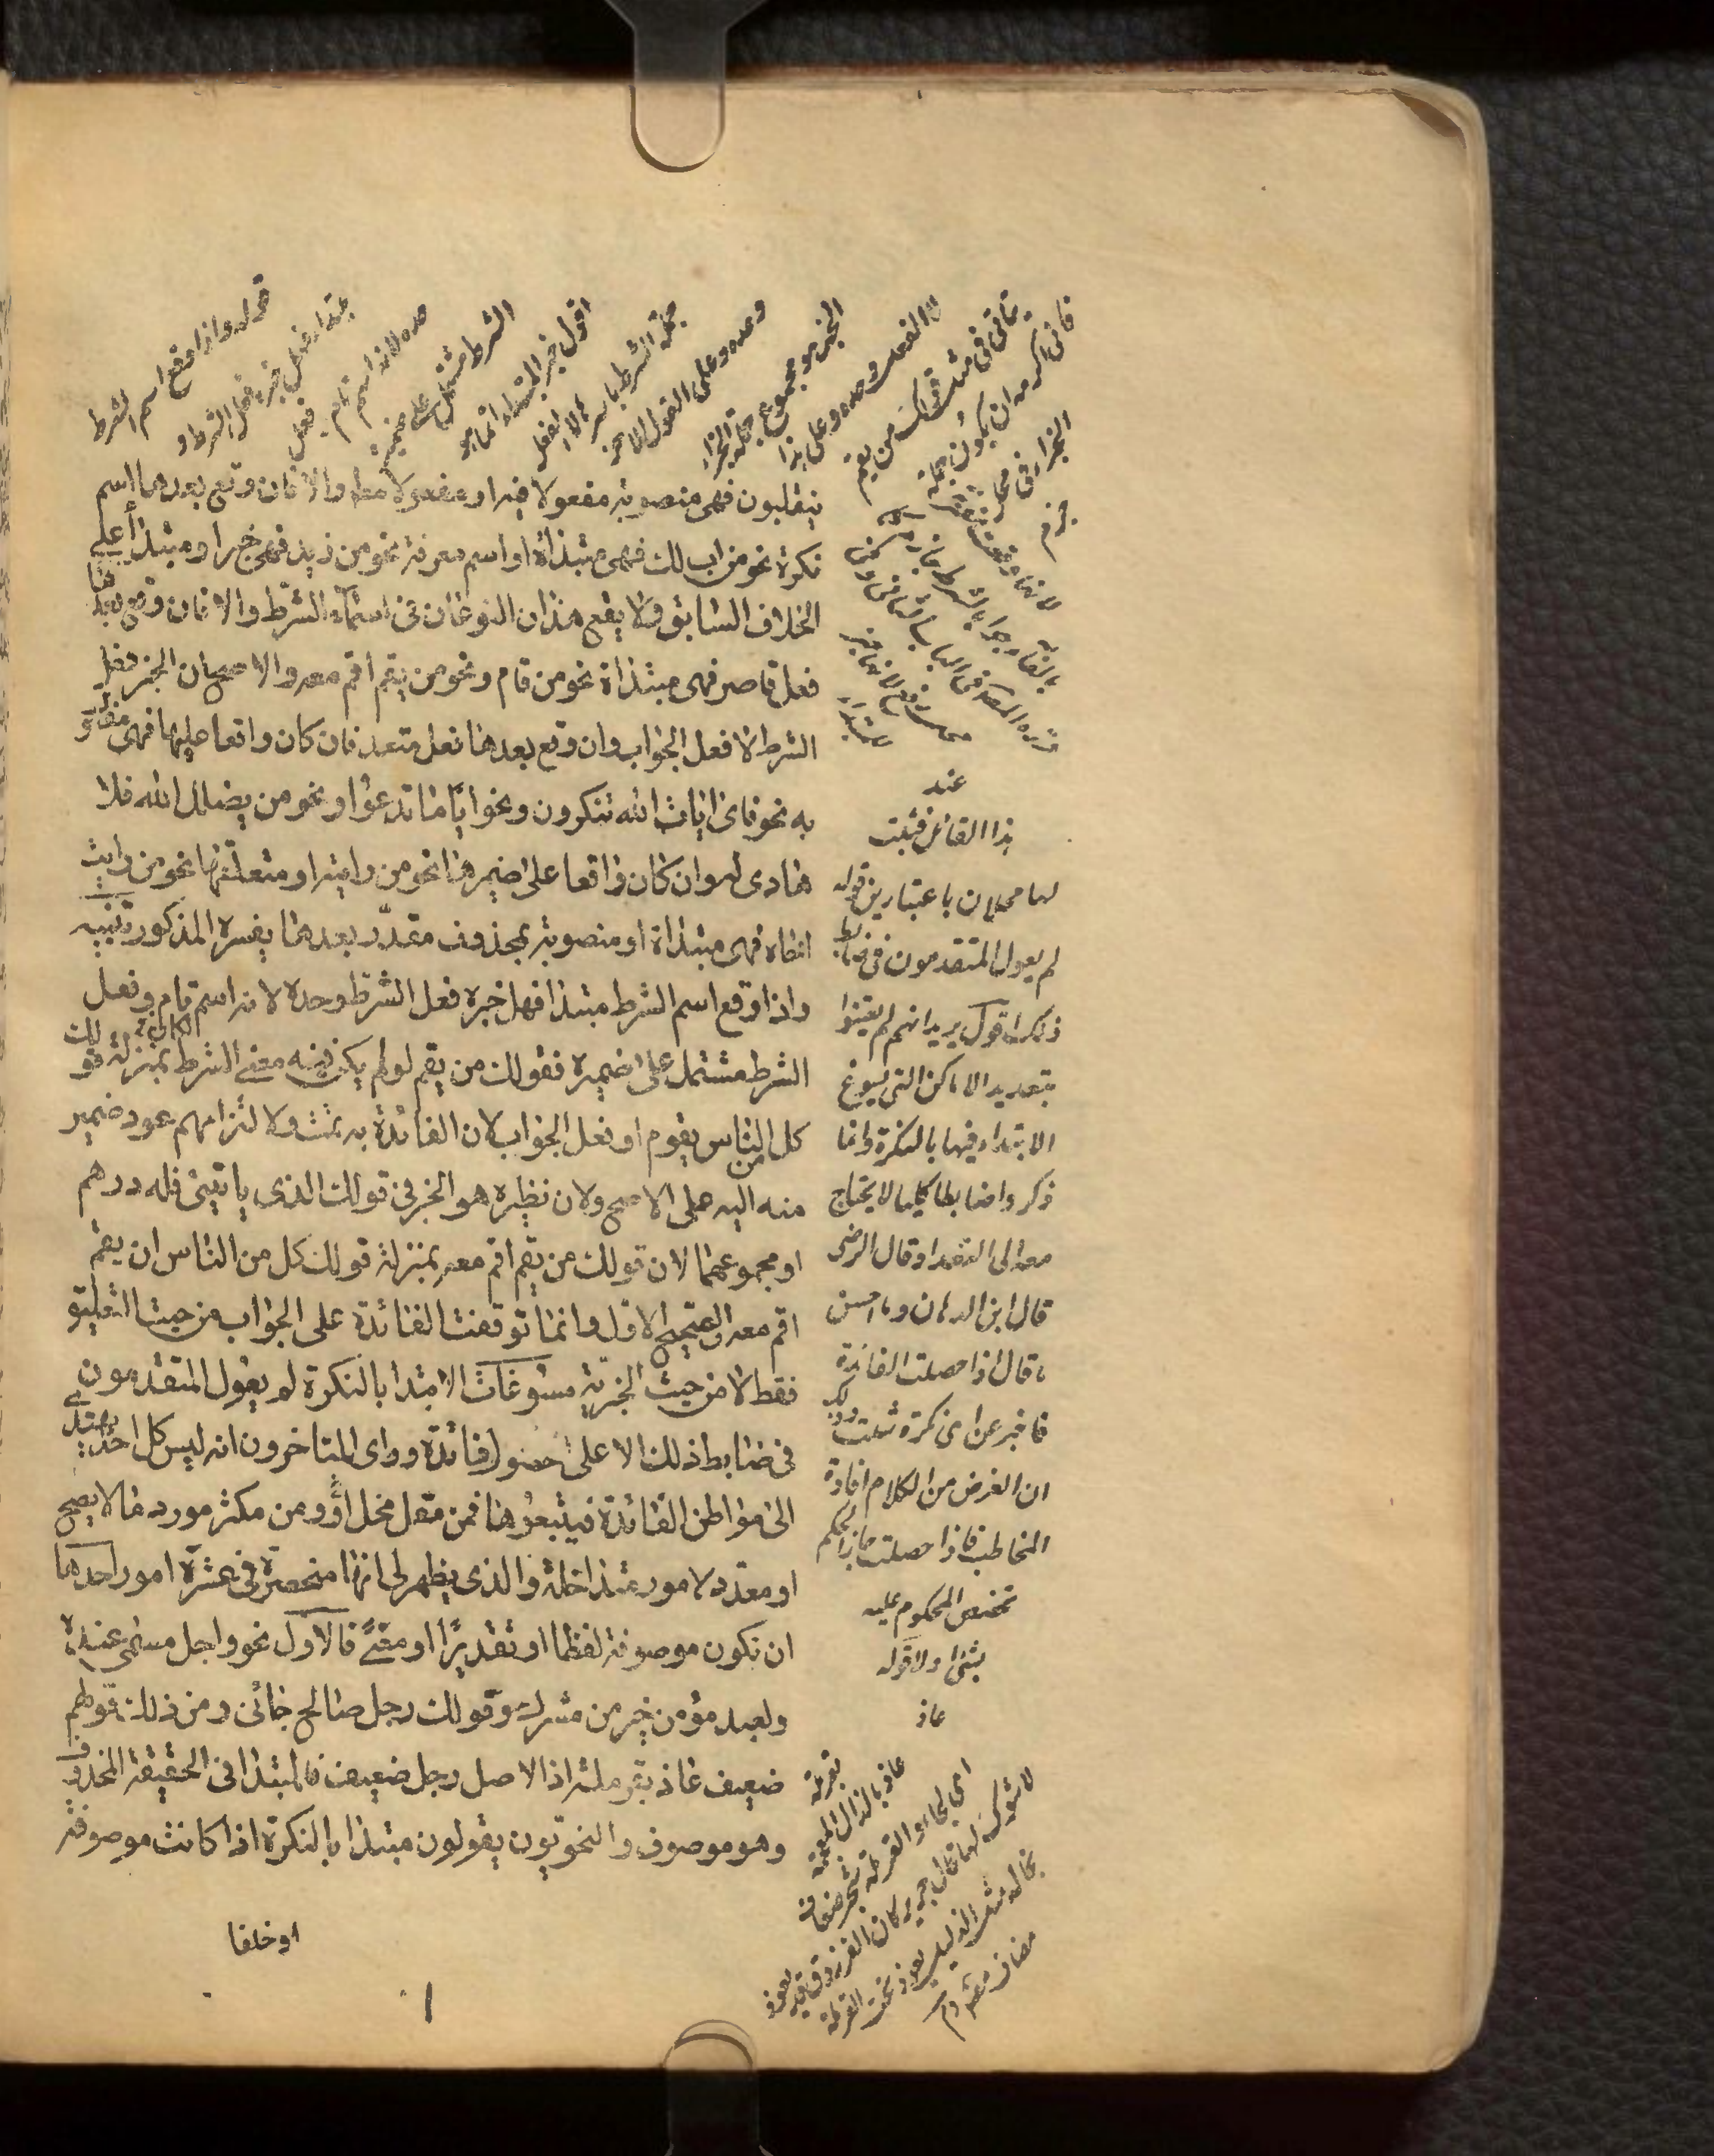 ينقلبون فهى منصوبة مفعولا فيه او مفعولا مطلقا والا فان وقع بعدها اسم
نكرة نحو من اب لك فهى مبتداة او اسم معرفة نحو من زيد فهى خبر او مبتدأ على
الخلاف السابق ولا يقع هذان النوعان فى اسماء الشرط والا فان وقع بعدها
فعل قاصر فهى مبتداة نحو من قام ونحو من يقم اقم معه والاصح ان الخبر فعل
الشرط لا فعل الجواب وان وقع بعدها فعل متعد فان كان واقعا عليها فهى مفعول
به نحو فاى ايات الله تنكرون ونحو ايا ما تدعوا ونحو من يضلل الله فلا
هادى له وان كان واقعا على ضميرها نحو من رايته او متعلقها نحو من رايت
اخاه فهى مبتداة او منصوبة بمحذوف مقدر بعدها يفسره المذكور تنبيه
واذا وقع اسم الشرط مبتدا فهل خبره فعل الشرط وحده لانه اسم تام وفعل
الشرط مشتمل على ضميره فقولك من يقم لو لم يكن فيه معنى الشرط بمنزلة قولك
كل من الناس يقوم او فعل الجواب لان الفائدة به تمت ولالتزامهم عود ضمير
منه اليه على الاصح ولان نظيره هو الخبر فى قولك الذى ياتينى فله درهم
او مجموعهما لان قولك من يقم اقم معه بمنزلة قولك كل من الناس ان يقم
اقم معه والصحيح الاول وانما توقفت الفائدة على الجواب من حيث التعليق
فقط لا من حيث الخبرية مسوغات الابتدا بالنكرة لم يعول المتقدمون
فى ضابط ذلك الا على حصول فائدة وراى المتاخرون انه ليس كل احد يهتدى
الى مواطن الفائدة فيتبعوها فمن مقل مخل ومن مكثر مورد ما لا يصح
او معدد لامور متداخلة والذى يظهر لى انها منحصرة فى عشرة امور احدها
ان تكون موصوفة لفظا او تقديرا او معنى فالاول نحو واجل مسمى عنده
ولعبد مؤمن خير من مشرك وقولك رجل صالح جائنى ومن ذلك قولهم
ضعيف عاذ بقرملة اذ الاصل رجل ضعيف فالمبتدا فى الحقيقة المحذوف
وهو موصوف والنحويون يقولون مبتدا بالنكرة اذا كانت موصوفة
او خلفا
قوله واذا وقع اسم الشرط
مبتدا فهل خبره فعل الشرط و
حده لانه اسم تام وفعل
الشرط مشتمل على ضميره
اقول خبر المبتداء انما هو
جملة الشرط باسره لا الفعل
وحده وعلى القول الاخر
الخبر هو مجموع جملة الجزاء
لا الفعل وحده وعلى هذا
عند
هذا القائل فثبت
لها محلان باعتبارين قوله
لم يعول المتقدمون فى ضابط
ذلك اقول يريد انهم لم يعتنوا
بتعديد الاماكن التى يسوغ
الابتداء فيها بالنكرة وانما
ذكروا ضابطا كليا لا يحتاج
معه الى التعداد قال الرضى
قال ابن الدهان وما احسن
ما قال اذا حصلت الفائدة
فاخبر عن اى نكرة شئت وذلك
ان الغرض من الكلام افادة
المخاطب فاذا حصلت جاز الحكم
تخصص المحكوم عليه
بشئ اولا قوله
عاذ
بقرملة
عاذ بالذال المعجمة
اى لجاء والقرملة شجر ضعاف
لا شوك لها قال جرير كان الفرزدق يعوذ
بخاله مثل الذليل يعوذ تحت القرملة